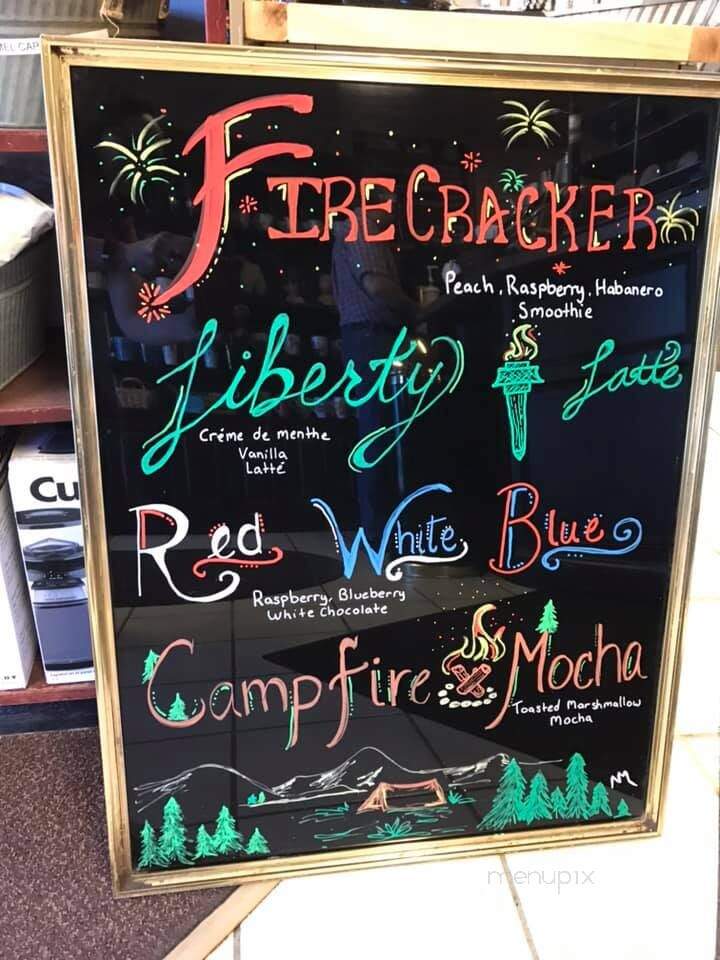 EL CAP
FIRECRACKER
Peach, Raspberry, Habanero
Smoothie
Liberty Latté
Créme de menthe
Vanilla
Latté
Red White Blue
Raspberry, Blueberry
White Chocolate
Cu
Campfire Mocha
Toasted Marshmallow
Mocha
NM
menupix